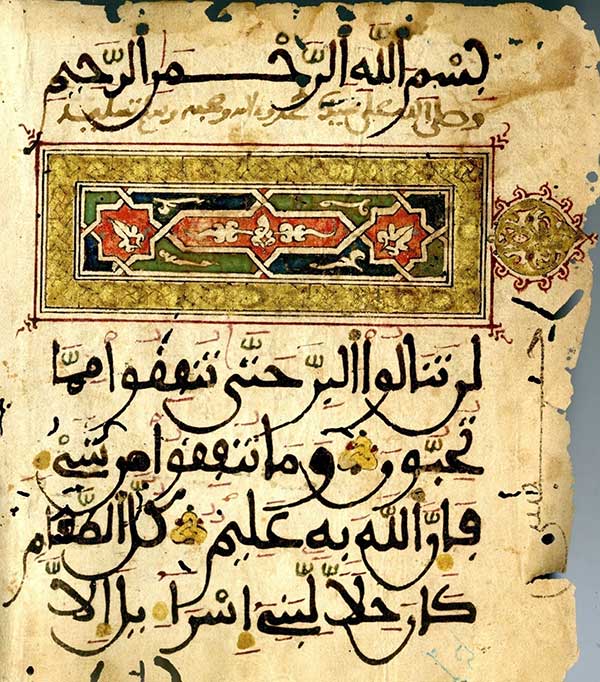 بِسْمِ اللَّهِ الرَّحْمَنِ الرَّحِيمِ
وصلى الله على سيدنا محمد واله وصحبه وسلم تسليما
لَن تَنَالُوا الْبِرَّ حَتَّى تُنفِقُوا مِمَّا
تُحِبُّونَ وَمَا تُنفِقُوا مِن شَيْءٍ
فَإِنَّ اللَّهَ بِهِ عَلِيمٌ كُلُّ الطَّعَامِ
كَانَ حِلًّا لِّبَنِي إِسْرَاءِيلَ إِلَّا